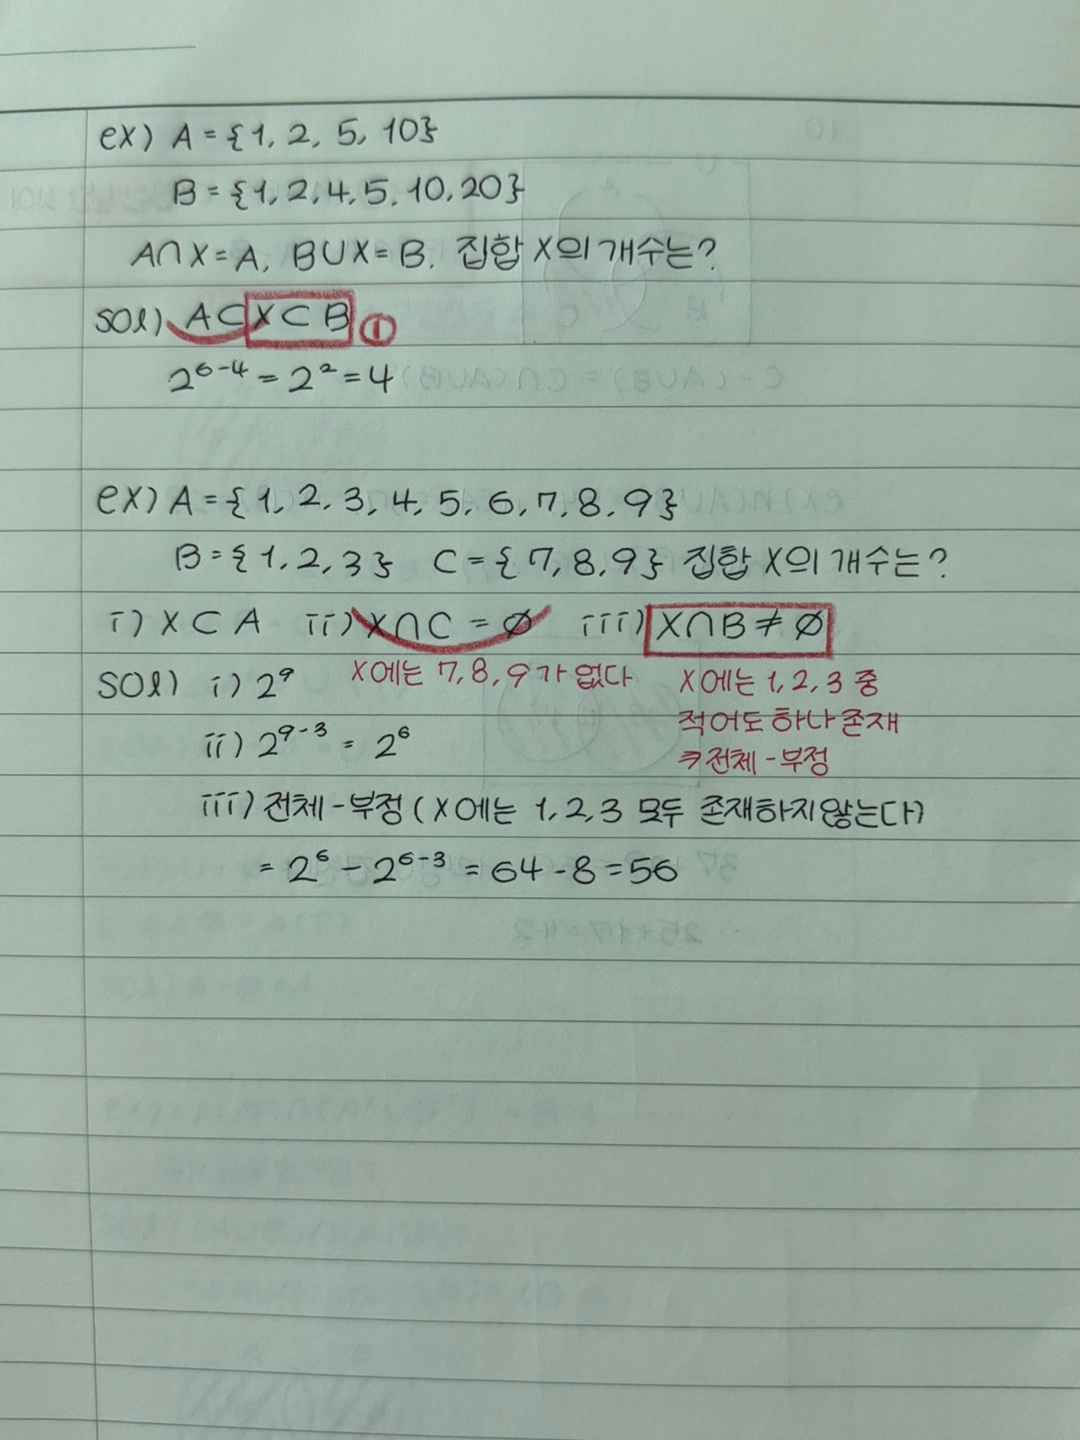 ex) A = {1, 2, 5, 10}
B = {1, 2, 4, 5, 10, 20}
A∩X = A, B∪X = B. 집합 X의 개수는?
sol) A⊂X⊂B ①
2⁶⁻⁴ = 2² = 4
ex) A = {1, 2, 3, 4, 5, 6, 7, 8, 9}
B = {1, 2, 3} C = {7, 8, 9} 집합 X의 개수는?
i) X ⊂ A ii) X∩C = ∅ iii) X∩B ≠ ∅
sol) i) 2⁹ X에는 7, 8, 9가 없다 X에는 1, 2, 3 중
적어도 하나 존재
ii) 2⁹⁻³ = 2⁶
⇒ 전체 - 부정
iii) 전체 - 부정 (X에는 1, 2, 3 모두 존재하지 않는다)
= 2⁶ - 2⁶⁻³ = 64 - 8 = 56